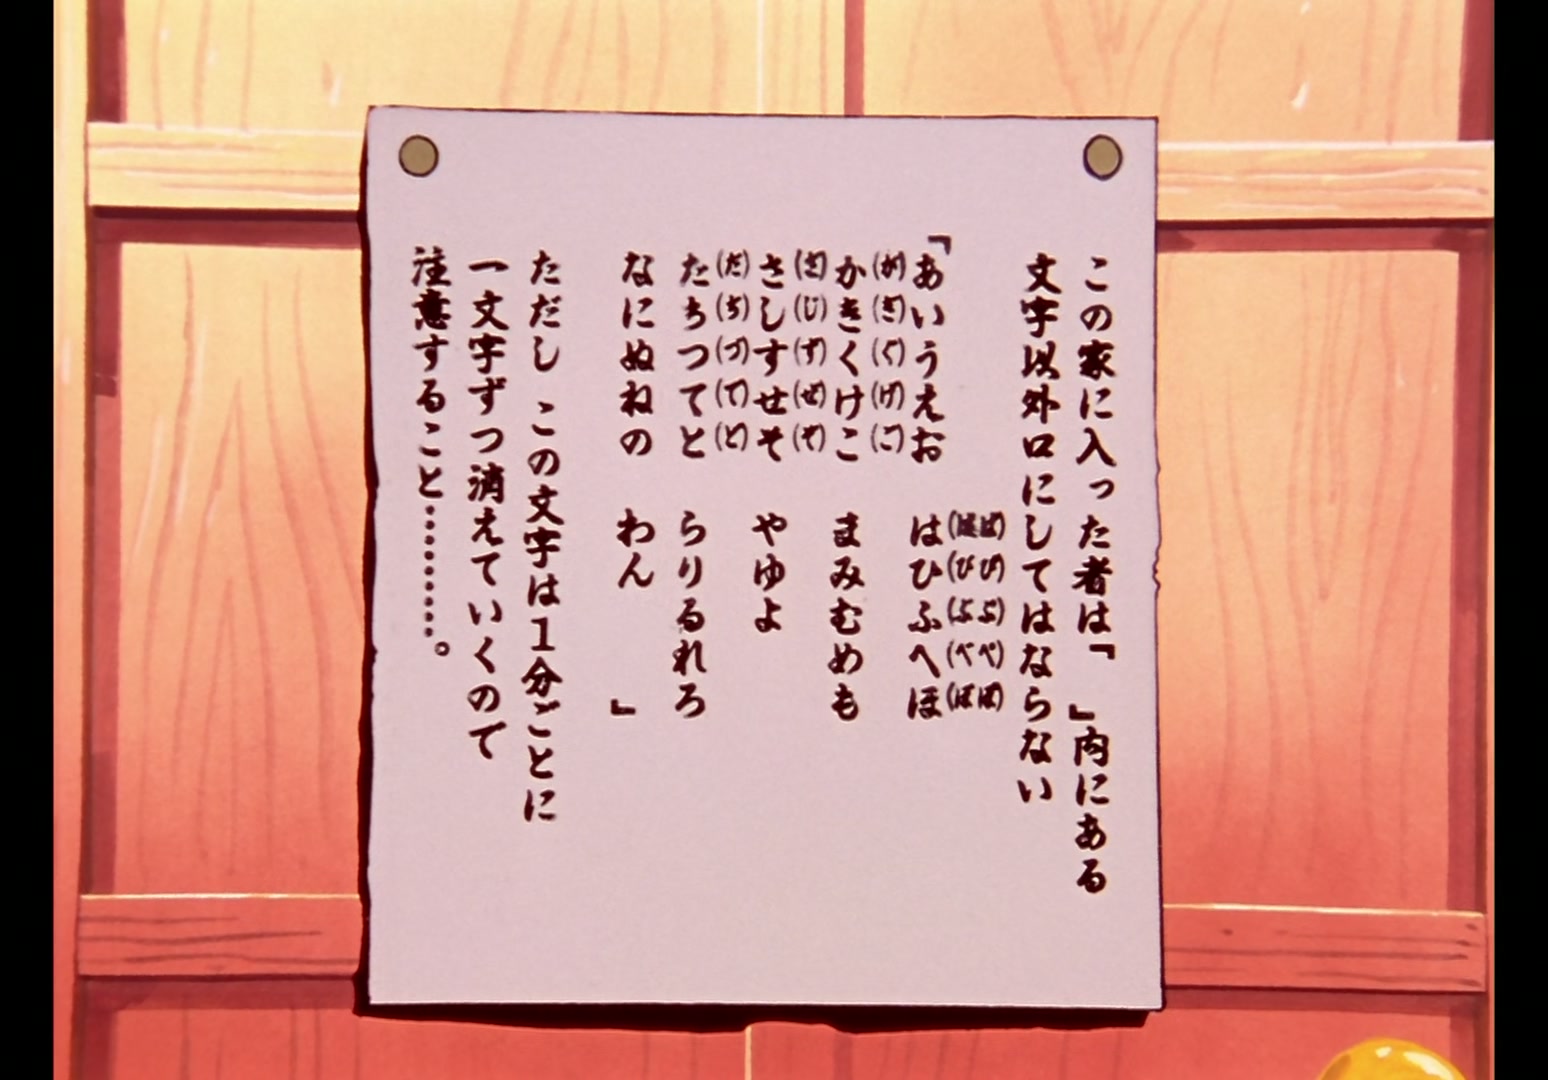 この家に入った者は『　』内にある
文字以外口にしてはならない
『あいうえお
(が)(ぎ)(ぐ)(げ)(ご)
かきくけこ
(ざ)(じ)(ず)(ぜ)(ぞ)
さしすせそ
(だ)(ぢ)(づ)(で)(ど)
たちつてと
なにぬねの
(ぱ)(ぴ)(ぷ)(ぺ)(ぽ)
(ば)(び)(ぶ)(べ)(ぼ)
はひふへほ
まみむめも
やゆよ
らりるれろ
わん　』
ただし この文字は1分ごとに
一文字ずつ消えていくので
注意すること………。